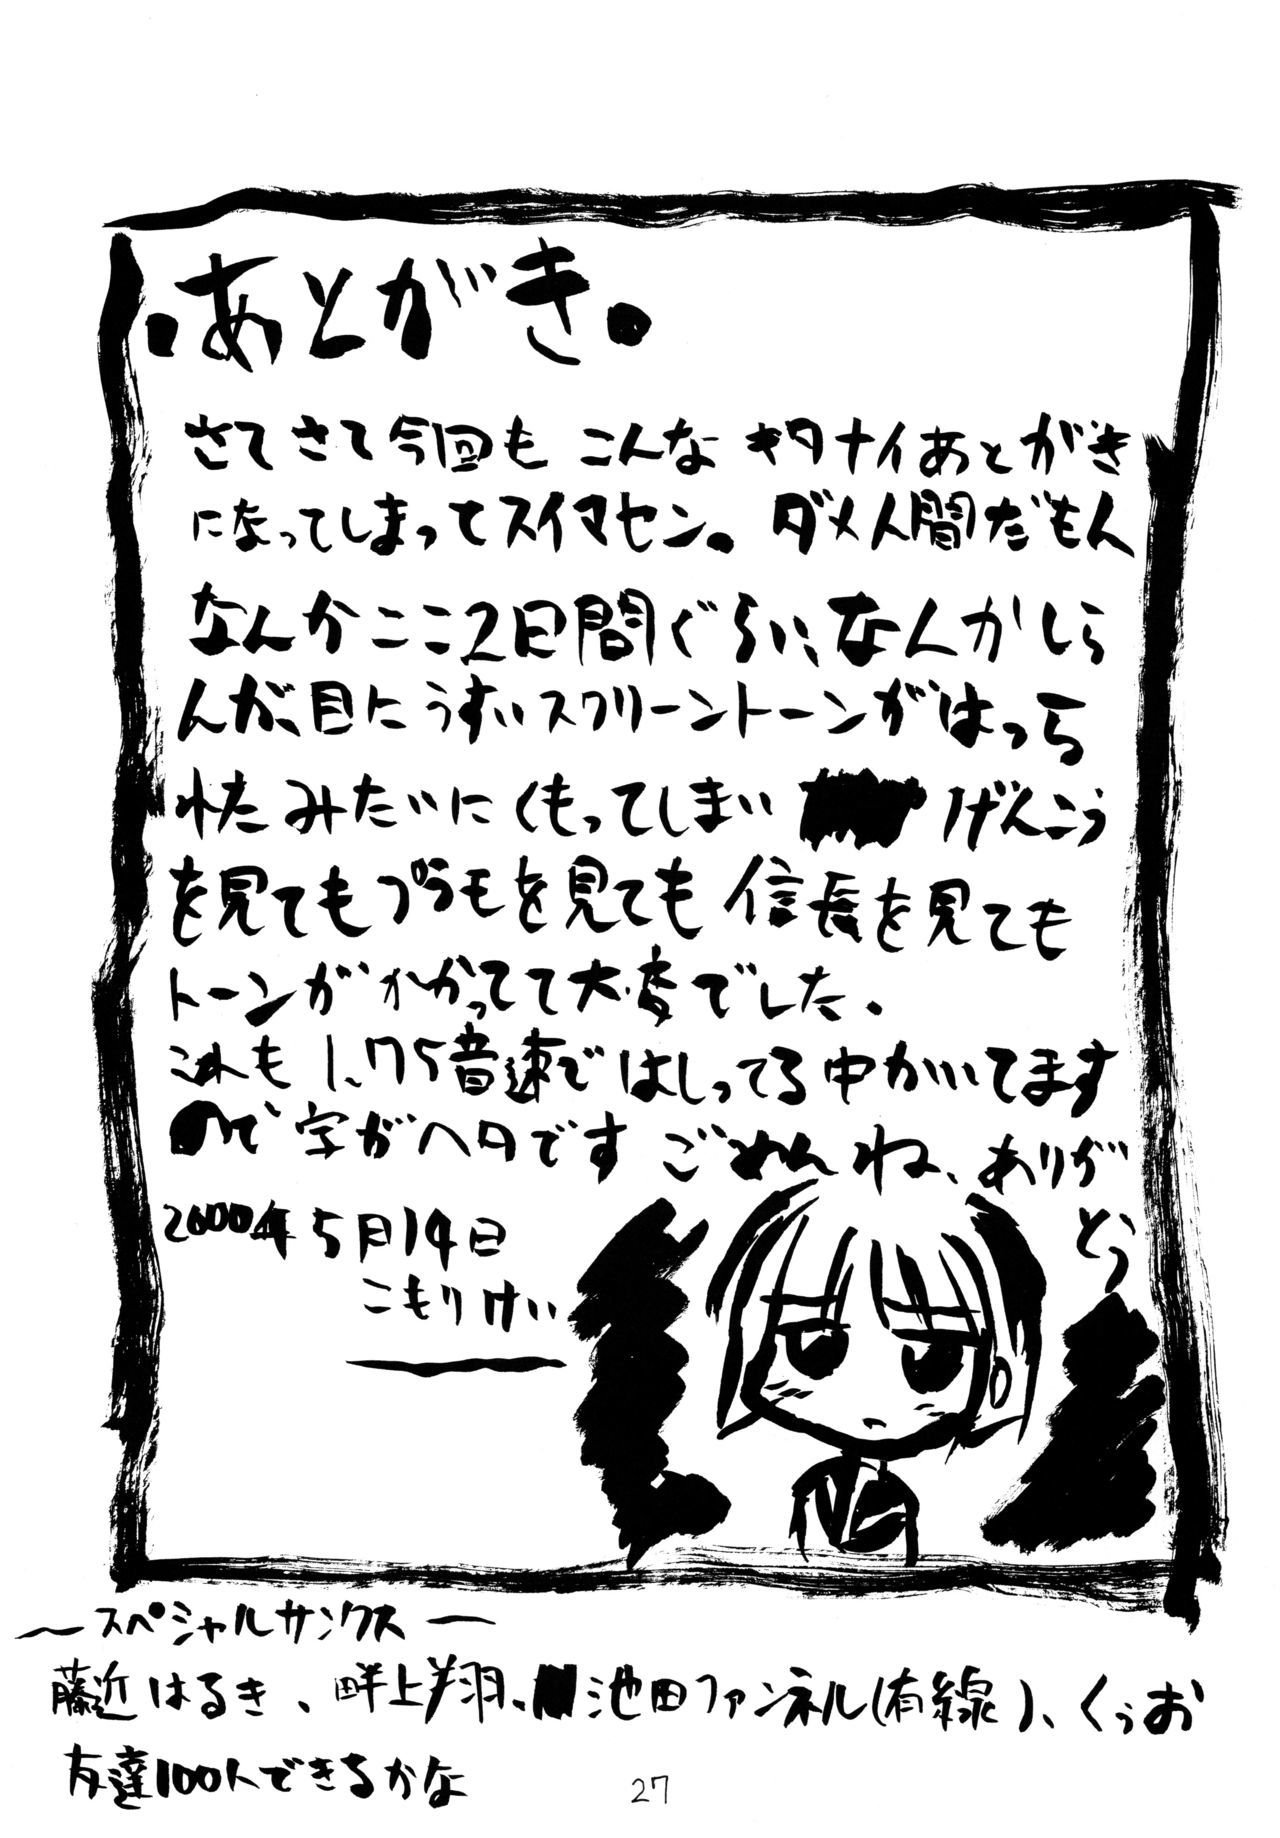 ・あとがき・
さてさて今回も こんな キタナイあとがき
になってしまってスイマセン。ダメ人間だもん
なんかここ2日間ぐらい、なんかしら
んが、目にうすいスクリーントーンがはっら
れたみたいにくもってしまい げんこう
を見てもプラモを見ても 信長を見ても
トーンがかかってて大変でした。
これも 1.75音速ではしってる中かいてます
ので 字がヘタです ごめんね、ありが
とう
2000年5月14日
こもりけい
〜スペシャルサンクス〜
藤近はるき、畔上翔、池田ファンネル(有線)、くぅお
友達100人できるかな
27